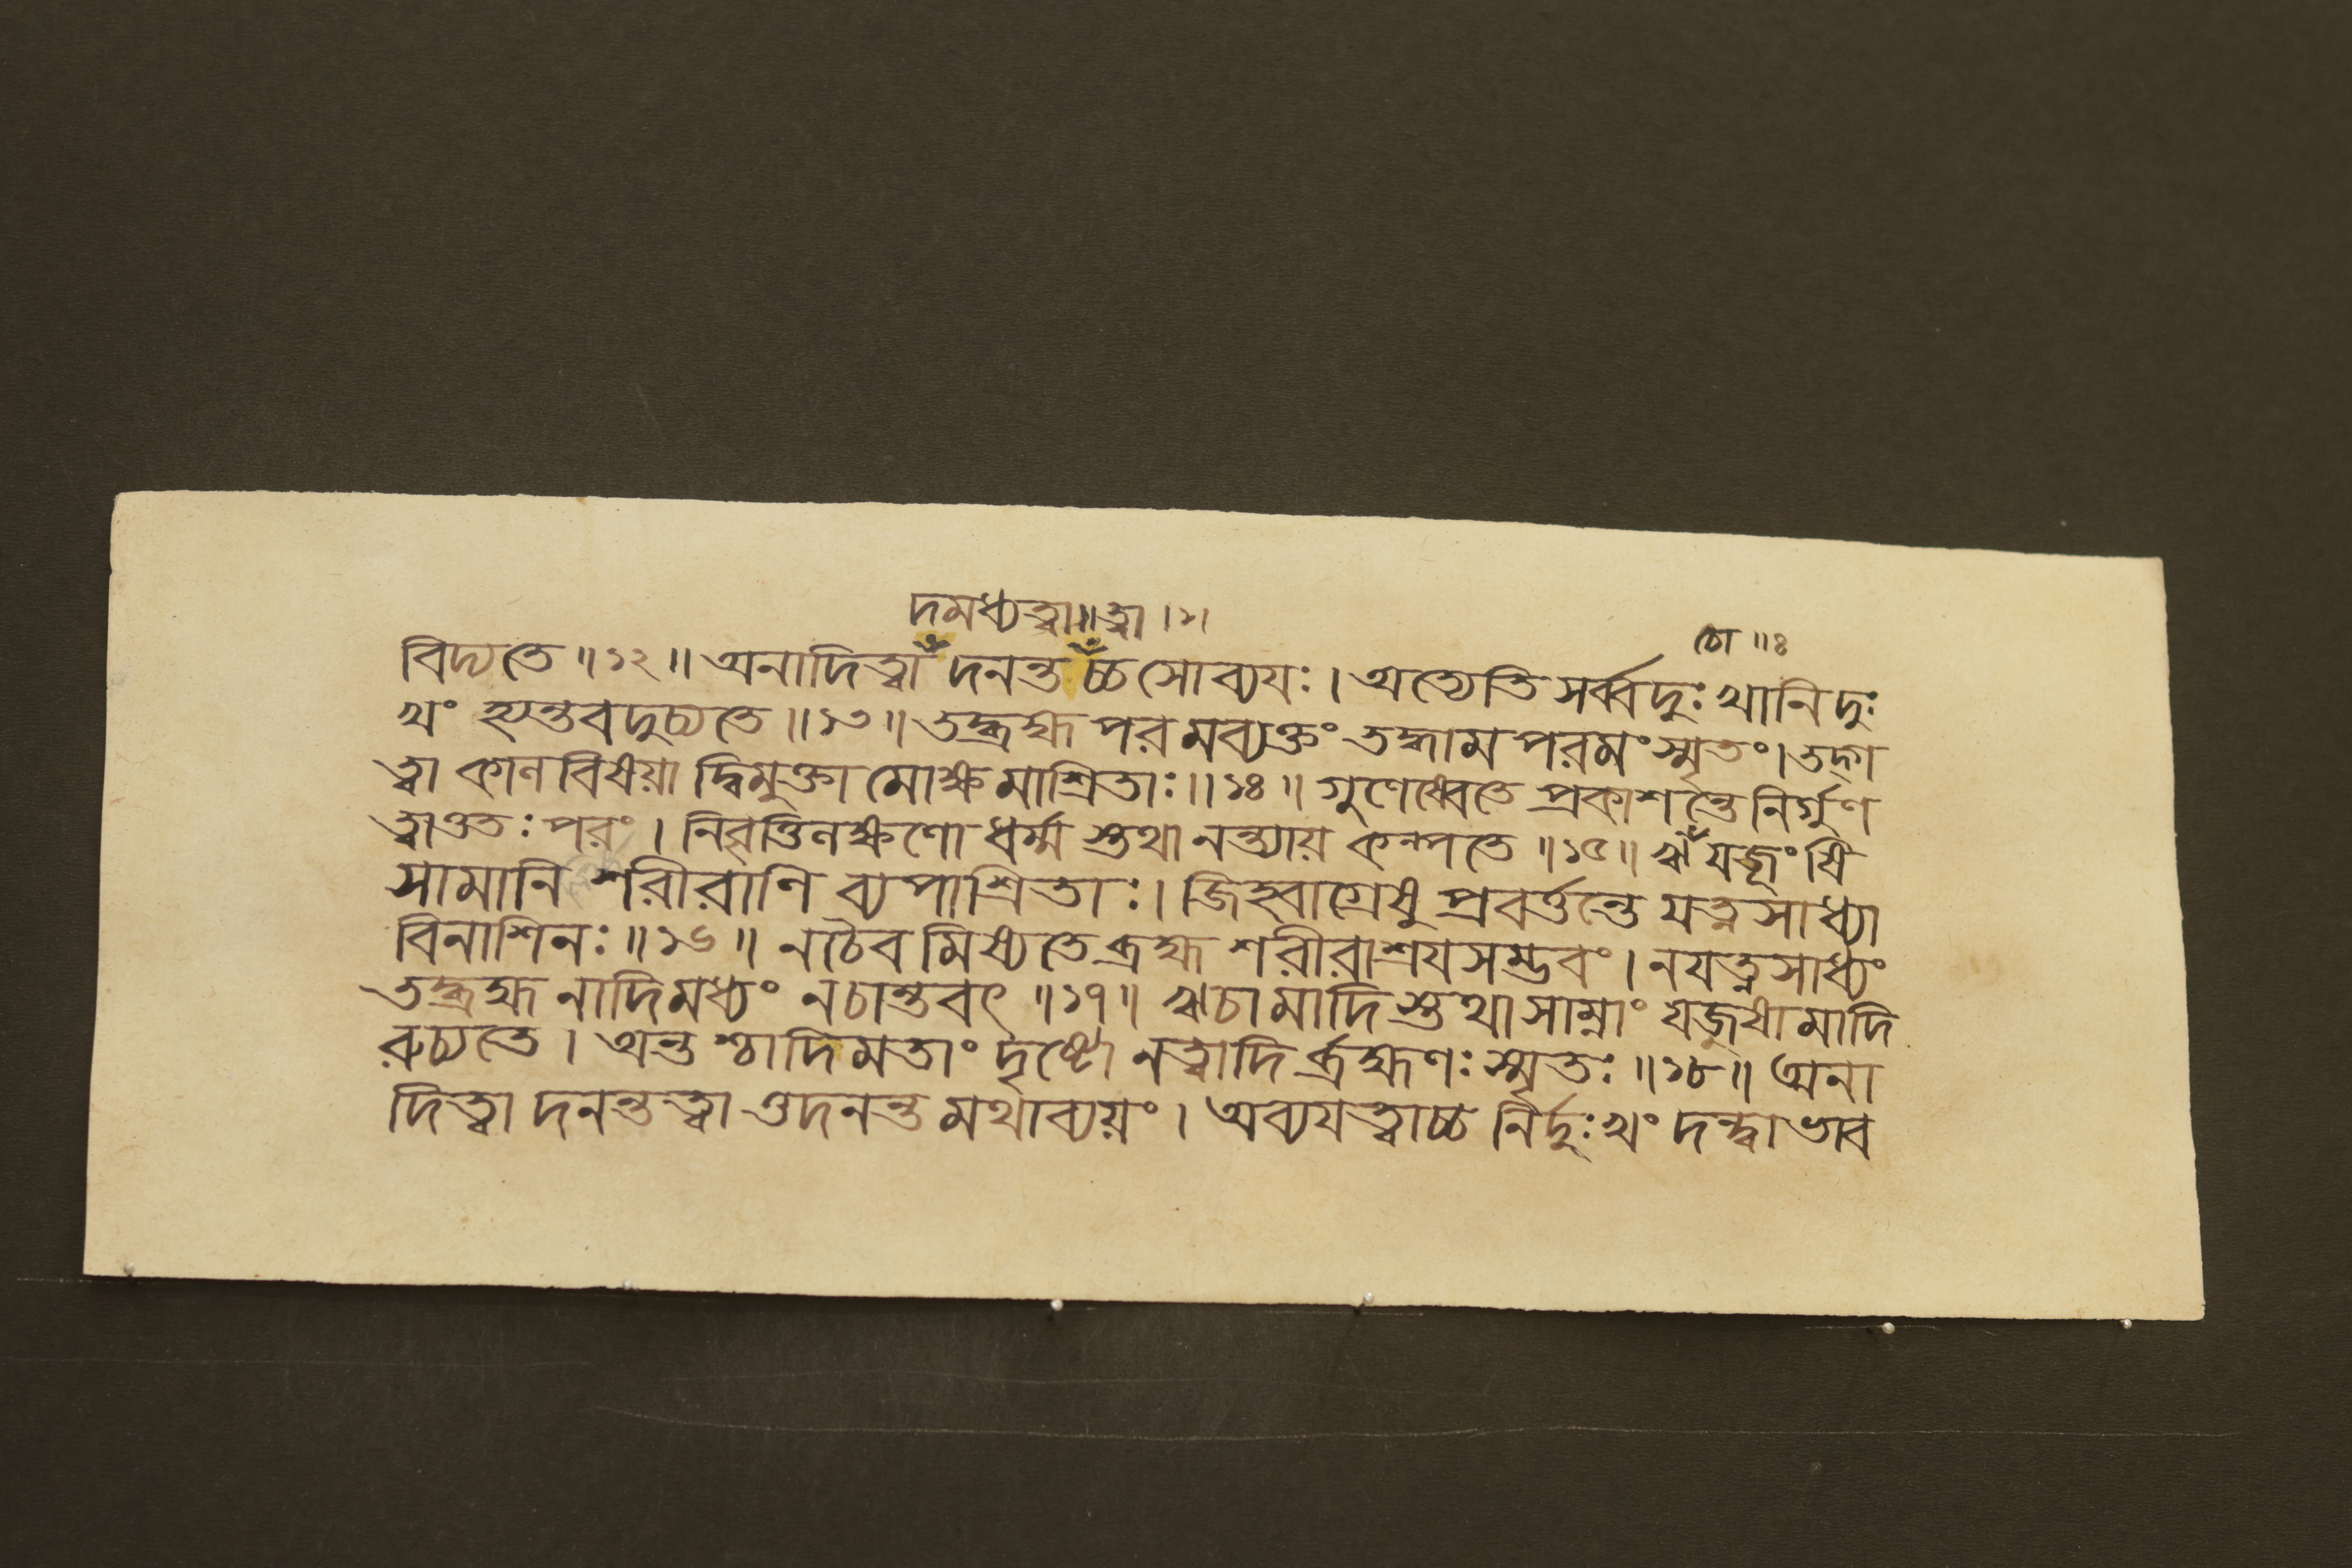 দমধ্যত্বা॥ত্বা ।১।
চো ॥ঃ
বিদ্যতে ॥১২॥ অনাদিত্বাঁ দনন্ত চ্চ সোব্যযঃ। অত্যেতি সর্ব্বদুঃখানি দুঃ
খং হ্যন্তবদুচ্যতে ॥১৩॥ তদ্ব্রহ্ম পরমব্যক্তং তদ্ধাম পরমং স্মৃতং। তদ্গ
ত্বা কালবিষয়া দ্বিমুক্তা মোক্ষমাশ্রিতাঃ॥১৪॥ গুণেষ্বেতে প্রকাশন্তে নির্গুণ
ত্বাত্ততঃ পরং। নিবৃত্তিলক্ষণো ধর্ম্ম স্তথা নন্ত্যায় কল্পতে ॥১৫॥ ঋঁ যজূংষি
সামানি শরীরাণি ব্যপাশ্রিতাঃ। জিহ্বাগ্রেষু প্রবর্ত্তন্তে যত্নসাধ্যা
বিনাশিনঃ॥১৬॥ নচৈব মিষ্যতে ব্রহ্ম শরীরাশ্রযসম্ভবং। নযত্নসাধ্যং
তদ্ব্রহ্ম নাদিমধ্যং নচান্তবৎ ॥১৭॥ ঋচামাদি স্তথাসাম্নাং যজুষামাদি
রুচ্যতে। অন্ত শ্চাদিমতাং দৃষ্টো নত্বাদি র্ব্রহ্মণঃ স্মৃতঃ ॥১৮॥ অনা
দিত্বা দনন্তত্বা ত্তদনন্ত মথাব্যয়ং। অব্যযত্বাচ্চ নির্দুঃখং দন্দ্বাভাব